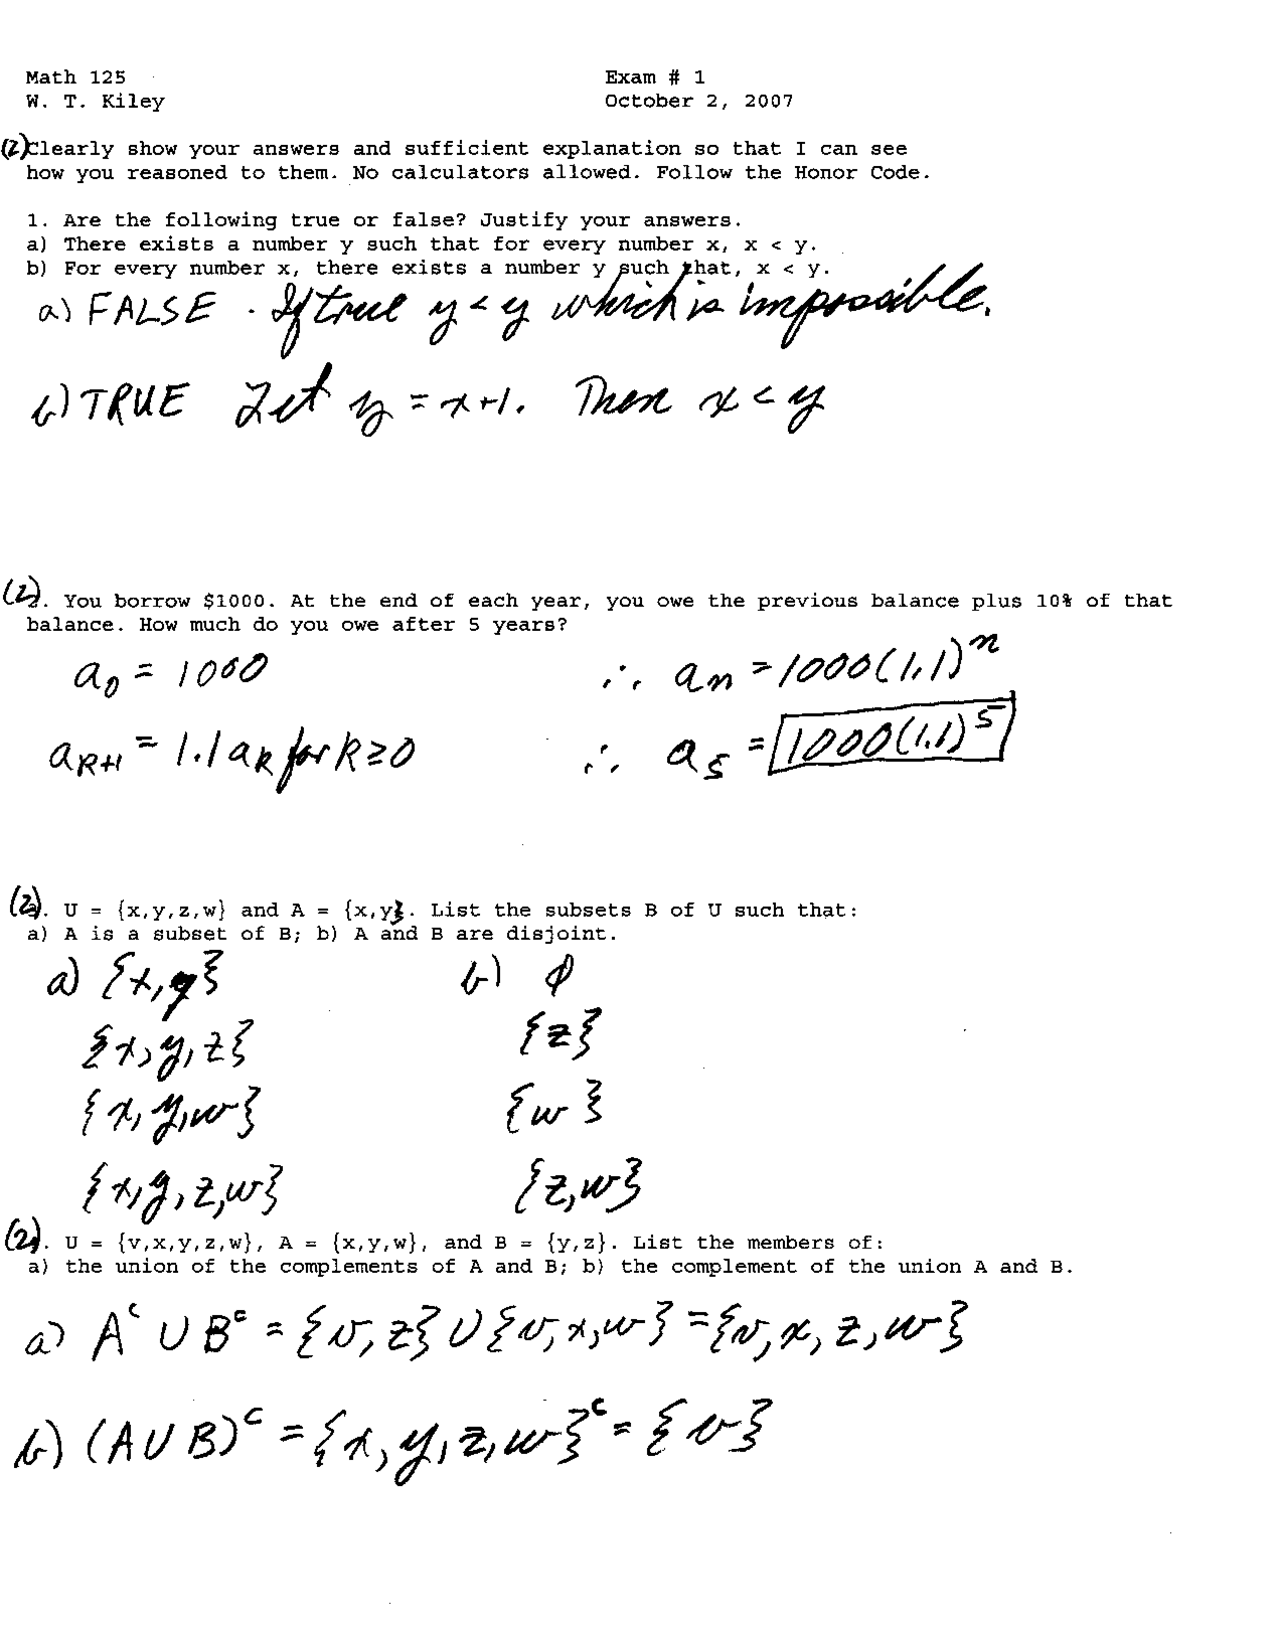 Math 125 Exam # 1
W. T. Kiley October 2, 2007
(2) Clearly show your answers and sufficient explanation so that I can see
how you reasoned to them. No calculators allowed. Follow the Honor Code.
1. Are the following true or false? Justify your answers.
a) There exists a number y such that for every number x, x < y.
b) For every number x, there exists a number y such that, x < y.
a) FALSE . If true y < y which is impossible.
b) TRUE Let y = x+1. Then x < y
(2). You borrow $1000. At the end of each year, you owe the previous balance plus 10% of that
balance. How much do you owe after 5 years?
a₀ = 1000 ∴ aₙ = 1000(1.1)ⁿ
aₖ₊₁ = 1.1 aₖ for k ≥ 0 ∴ a₅ = 1000(1.1)⁵
(2). U = {x,y,z,w} and A = {x,y}. List the subsets B of U such that:
a) A is a subset of B; b) A and B are disjoint.
a) {x,y} b) ϕ
{x,y,z} {z}
{x,y,w} {w}
{x,y,z,w} {z,w}
(2). U = {v,x,y,z,w}, A = {x,y,w}, and B = {y,z}. List the members of:
a) the union of the complements of A and B; b) the complement of the union A and B.
a) Aᶜ ∪ Bᶜ = {v,z} ∪ {v,x,w} = {v,x,z,w}
b) (A∪B)ᶜ = {x,y,z,w}ᶜ = {v}